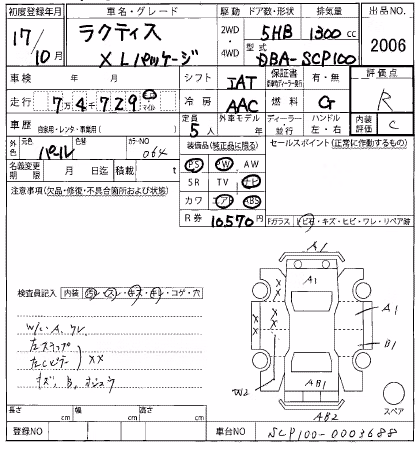 初度登録年月 車名・グレード 駆動 ドア数・形状 排気量 出品NO.
17/10月 ラクティス XLパッケージ 2WD 4WD 5HB 1300cc 2006
型式 DBA-SCP100
車検 年 月 シフト IAT 保証書 有・無 評価点
走行 7万4千729 キロ マイル 冷房 AAC 燃料 G R
車歴 自家用・レンタ・事業用( ) 定員 5人 外車モデル 年 ディーラー・並行 ハンドル 左・右 内装評価 C
外色 元色 パール 色替 カラーNO 064 装備品(純正品に限る) セールスポイント(正常に作動するもの)
名義変更期限 月 日迄 積載 t PS PW AW
注意事項(欠品・修復・不具合箇所および状態) SR TV ナビ
カワ エアB ABS
R券 10,570円
Fガラス ヒビ有・キズ・ヒビ・ワレ・リペア跡
検査員記入 内装 汚レ・スレ・キズ・キレ・コゲ・穴
A1
A1
X X
X X
A1
W/C・A、ワレ
左ステップ
左Cピラー XX
キズ、B、ホシュウ
B1
W2
AB1
AB2
スペア
長さ cm 幅 cm 高さ cm
登録NO 車台NO SCP100-0003688